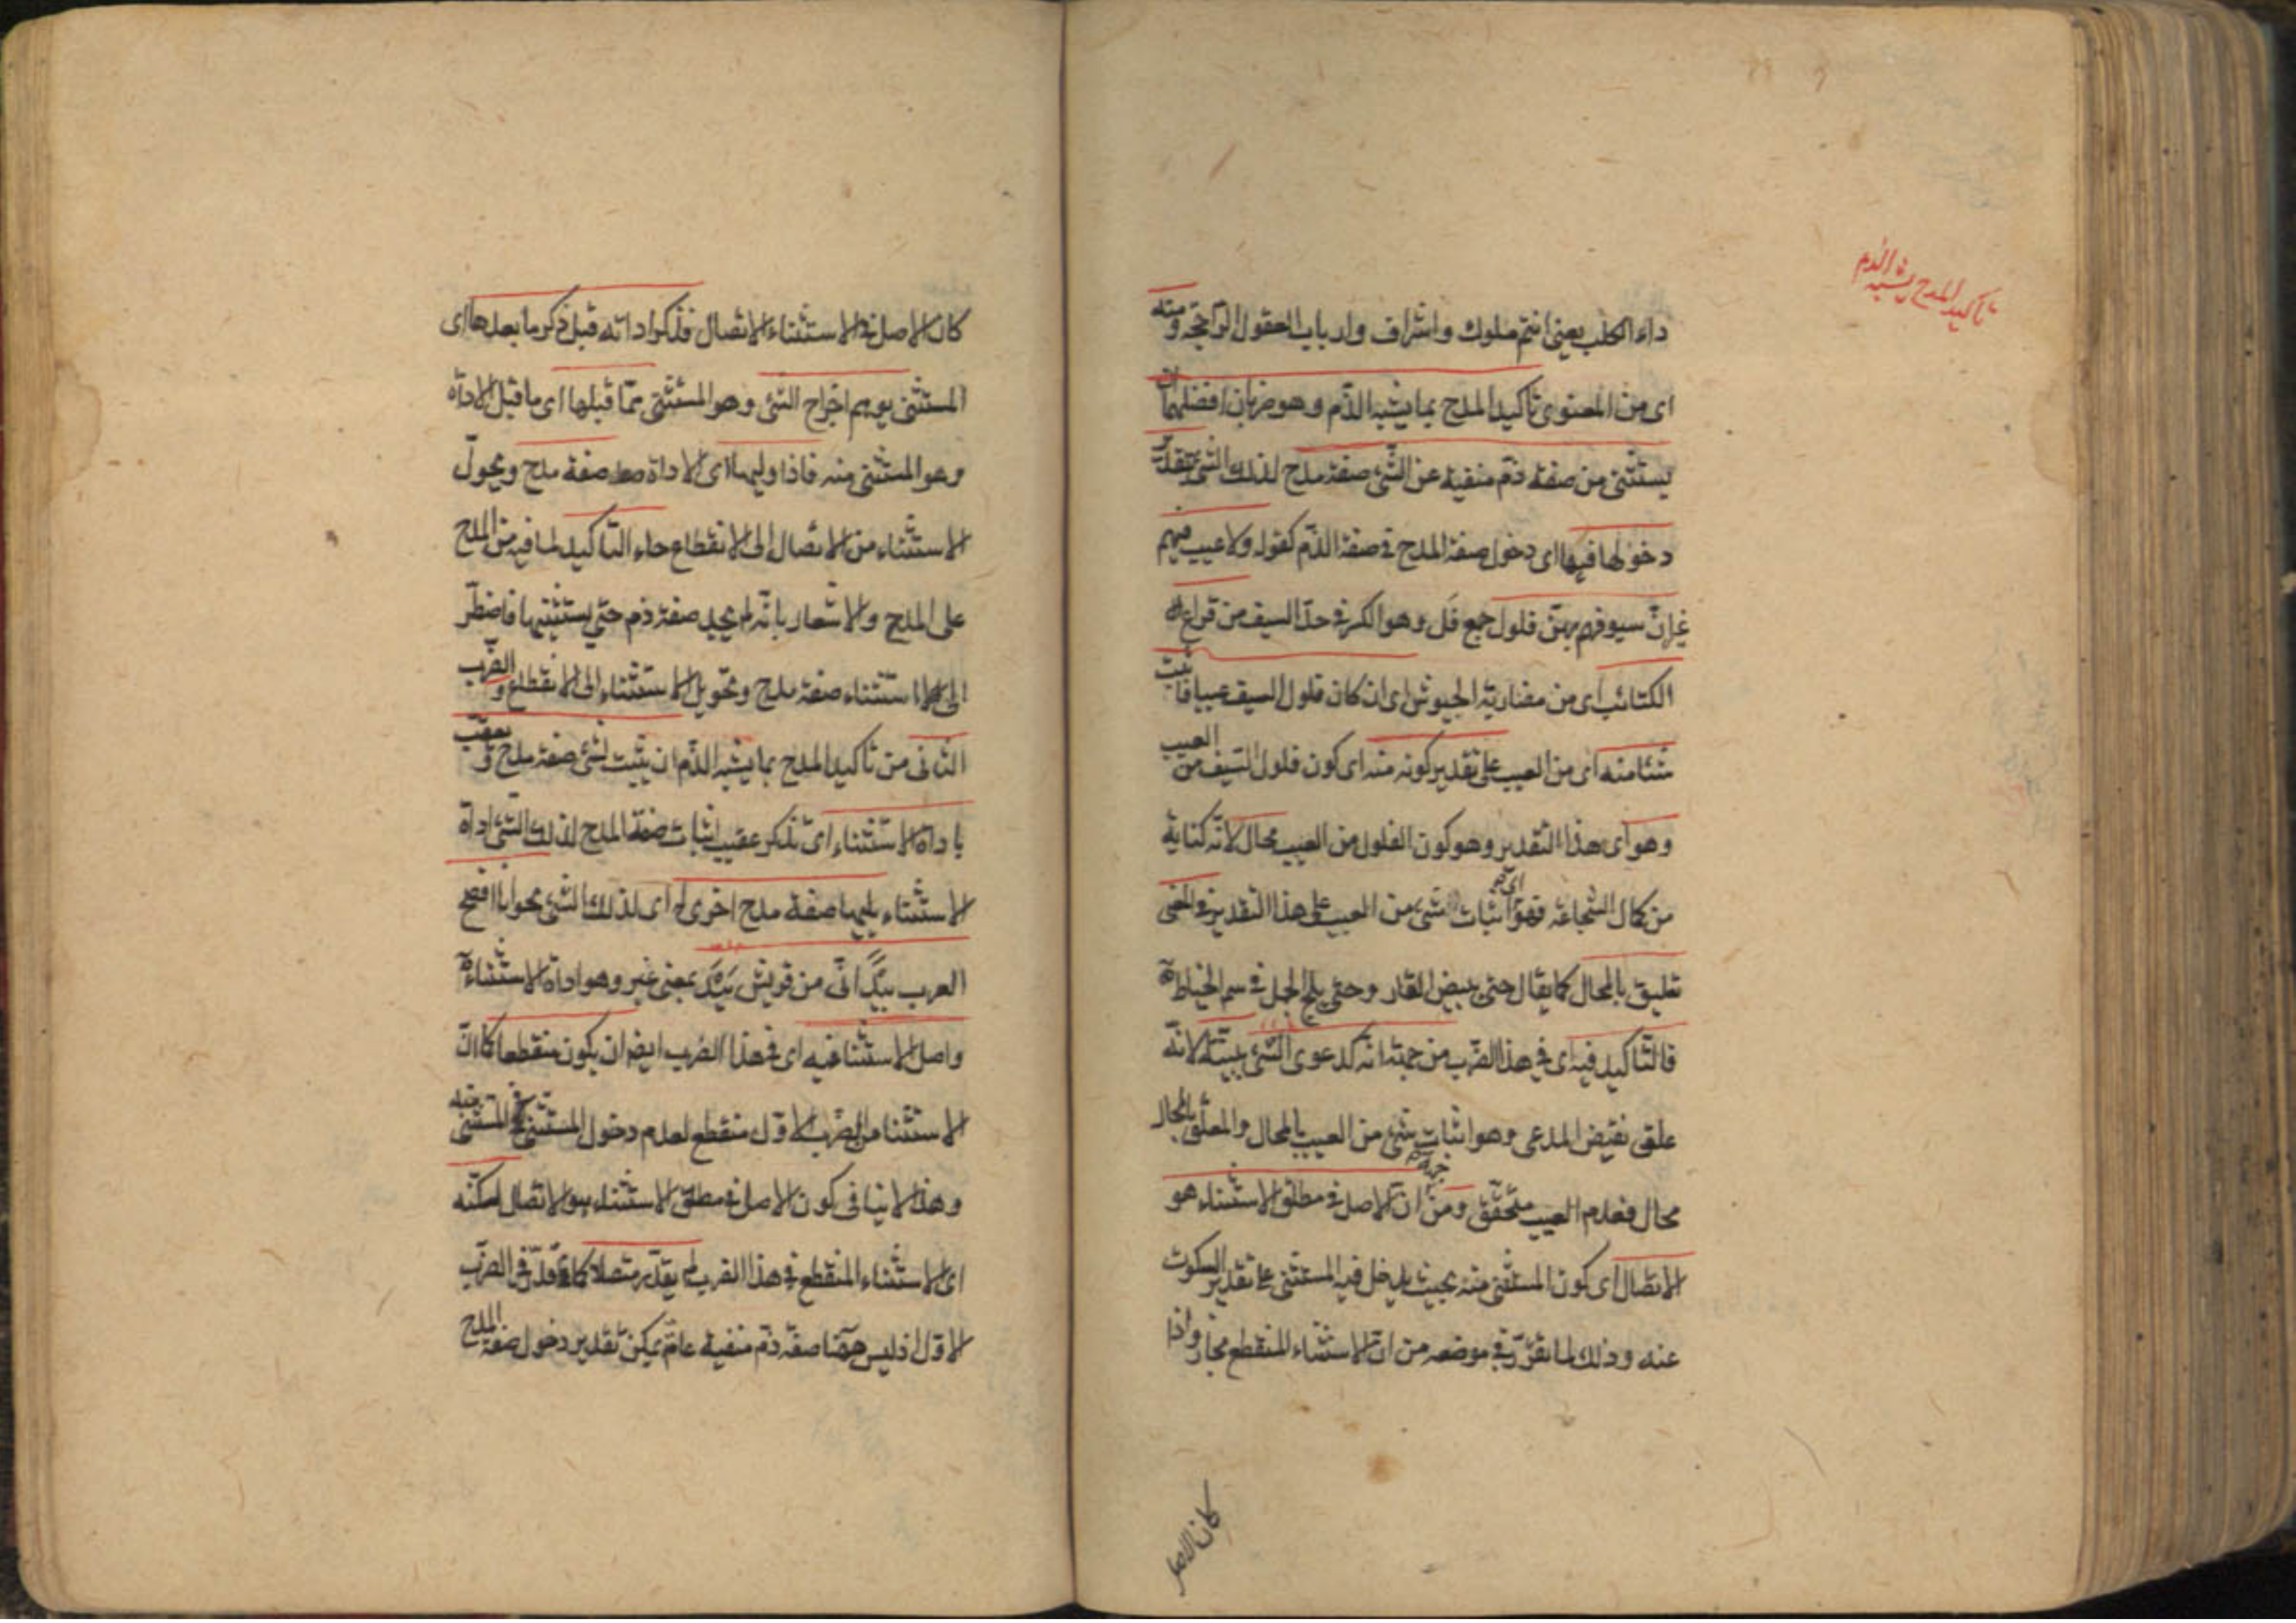 تأكيد المدح بما يشبه الذم
داء الكلب يعني انتم ملوك واشراف وارباب العقول الراجحة ومنه
اى من المعنوى تأكيد المدح بما يشبه الذّم وهو ضربان افضلهما ان
يستثنى من صفة ذم منفية عن الشئ صفة مدح لذلك الشئ بتقدير
دخولها فيها اى دخول صفة المدح في صفة الذّم كقوله ولا عيب فيهم
غير انّ سيوفهم بهنّ فلول جمع فل وهو الكسر في حدّ السيف من قراع
الكتائب اى من مضاربة الجيوش اى ان كان فلول السيف عيبا فاثبت
شئا منه اى من العيب على تقدير كونه منه اى كون فلول السّيف من العيب
وهو اى هذا التقدير وهو كون الفلول من العيب محال لانّه كناية
من كمال الشجاعة فهو اى اثبات شئ من العيب على هذا التقدير في المعنى
تعليق بالمحال كما يقال حتى يبيض القار وحتى يلج الجمل في سم الخياط
فالتّأكيد فيه اى في هذا الضّرب من جهة انه كدعوى الشّئ ببيّنة لانّه
علق نقيض المدعى وهو اثبات شئ من العيب بالمحال والمعلّق بالمحال
محال فعدم العيب متحقّق ومن جهة انّ الاصل في مطلق الاستثناء هو
الاتصال اى كون المستثنى منه بحيث يدخل فيه المستثنى على تقدير السكوت
عنه وذلك لما تقرّر في موضعه من انّ الاستثناء المنقطع مجاز واذا
كان الاصل
كان الاصل في الاستثناء الاتصال فذكر اداته قبل ذكر ما بعدها اى
المستثنى يوهم اخراج الشئ وهو المستثنى ممّا قبلها اى ما قبل الاداة
وهو المستثنى منه فاذا وليها اى الاداة صفة مدح وتحوّل
الاستثناء من الاتصال الى الانقطاع جاء التأكيد لما فيه من المدح
على المدح والاشعار بانّه لم يجد صفة ذم حتى يستثنيها فاضطرّ
الى استثناء صفة مدح وتحويل الاستثناء الى الانقطاع والضّرب
الثانى من تأكيد المدح بما يشبه الذّم ان يثبت لشئ صفة مدح وتعقب
باداة الاستثناء اى تذكر عقيب اثبات صفة المدح لذلك الشئ اداة
الاستثناء يليها صفة مدح اخرى له اى لذلك الشئ نحو انا افصح
العرب بيد انّى من قريش بيد بمعنى غير وهو اداة الاستثناء
واصل الاستثنا فيه اى في هذا الضرب ايضا ان يكون منقطعا كما انّ
الاستثنا من الضرب الاوّل منقطع لعدم دخول المستثنى في المستثنى منه
وهذا لا ينافى كون الاصل في مطلق الاستثناء هو الاتصال لكنّه
اى الاستثناء المنقطع في هذا الضرب لم يقدّر متصلا كما قدّر في الضّرب
الاوّل اذ ليس ههنا صفة ذم منفية عامة يمكن تقدير دخول صفة المدح